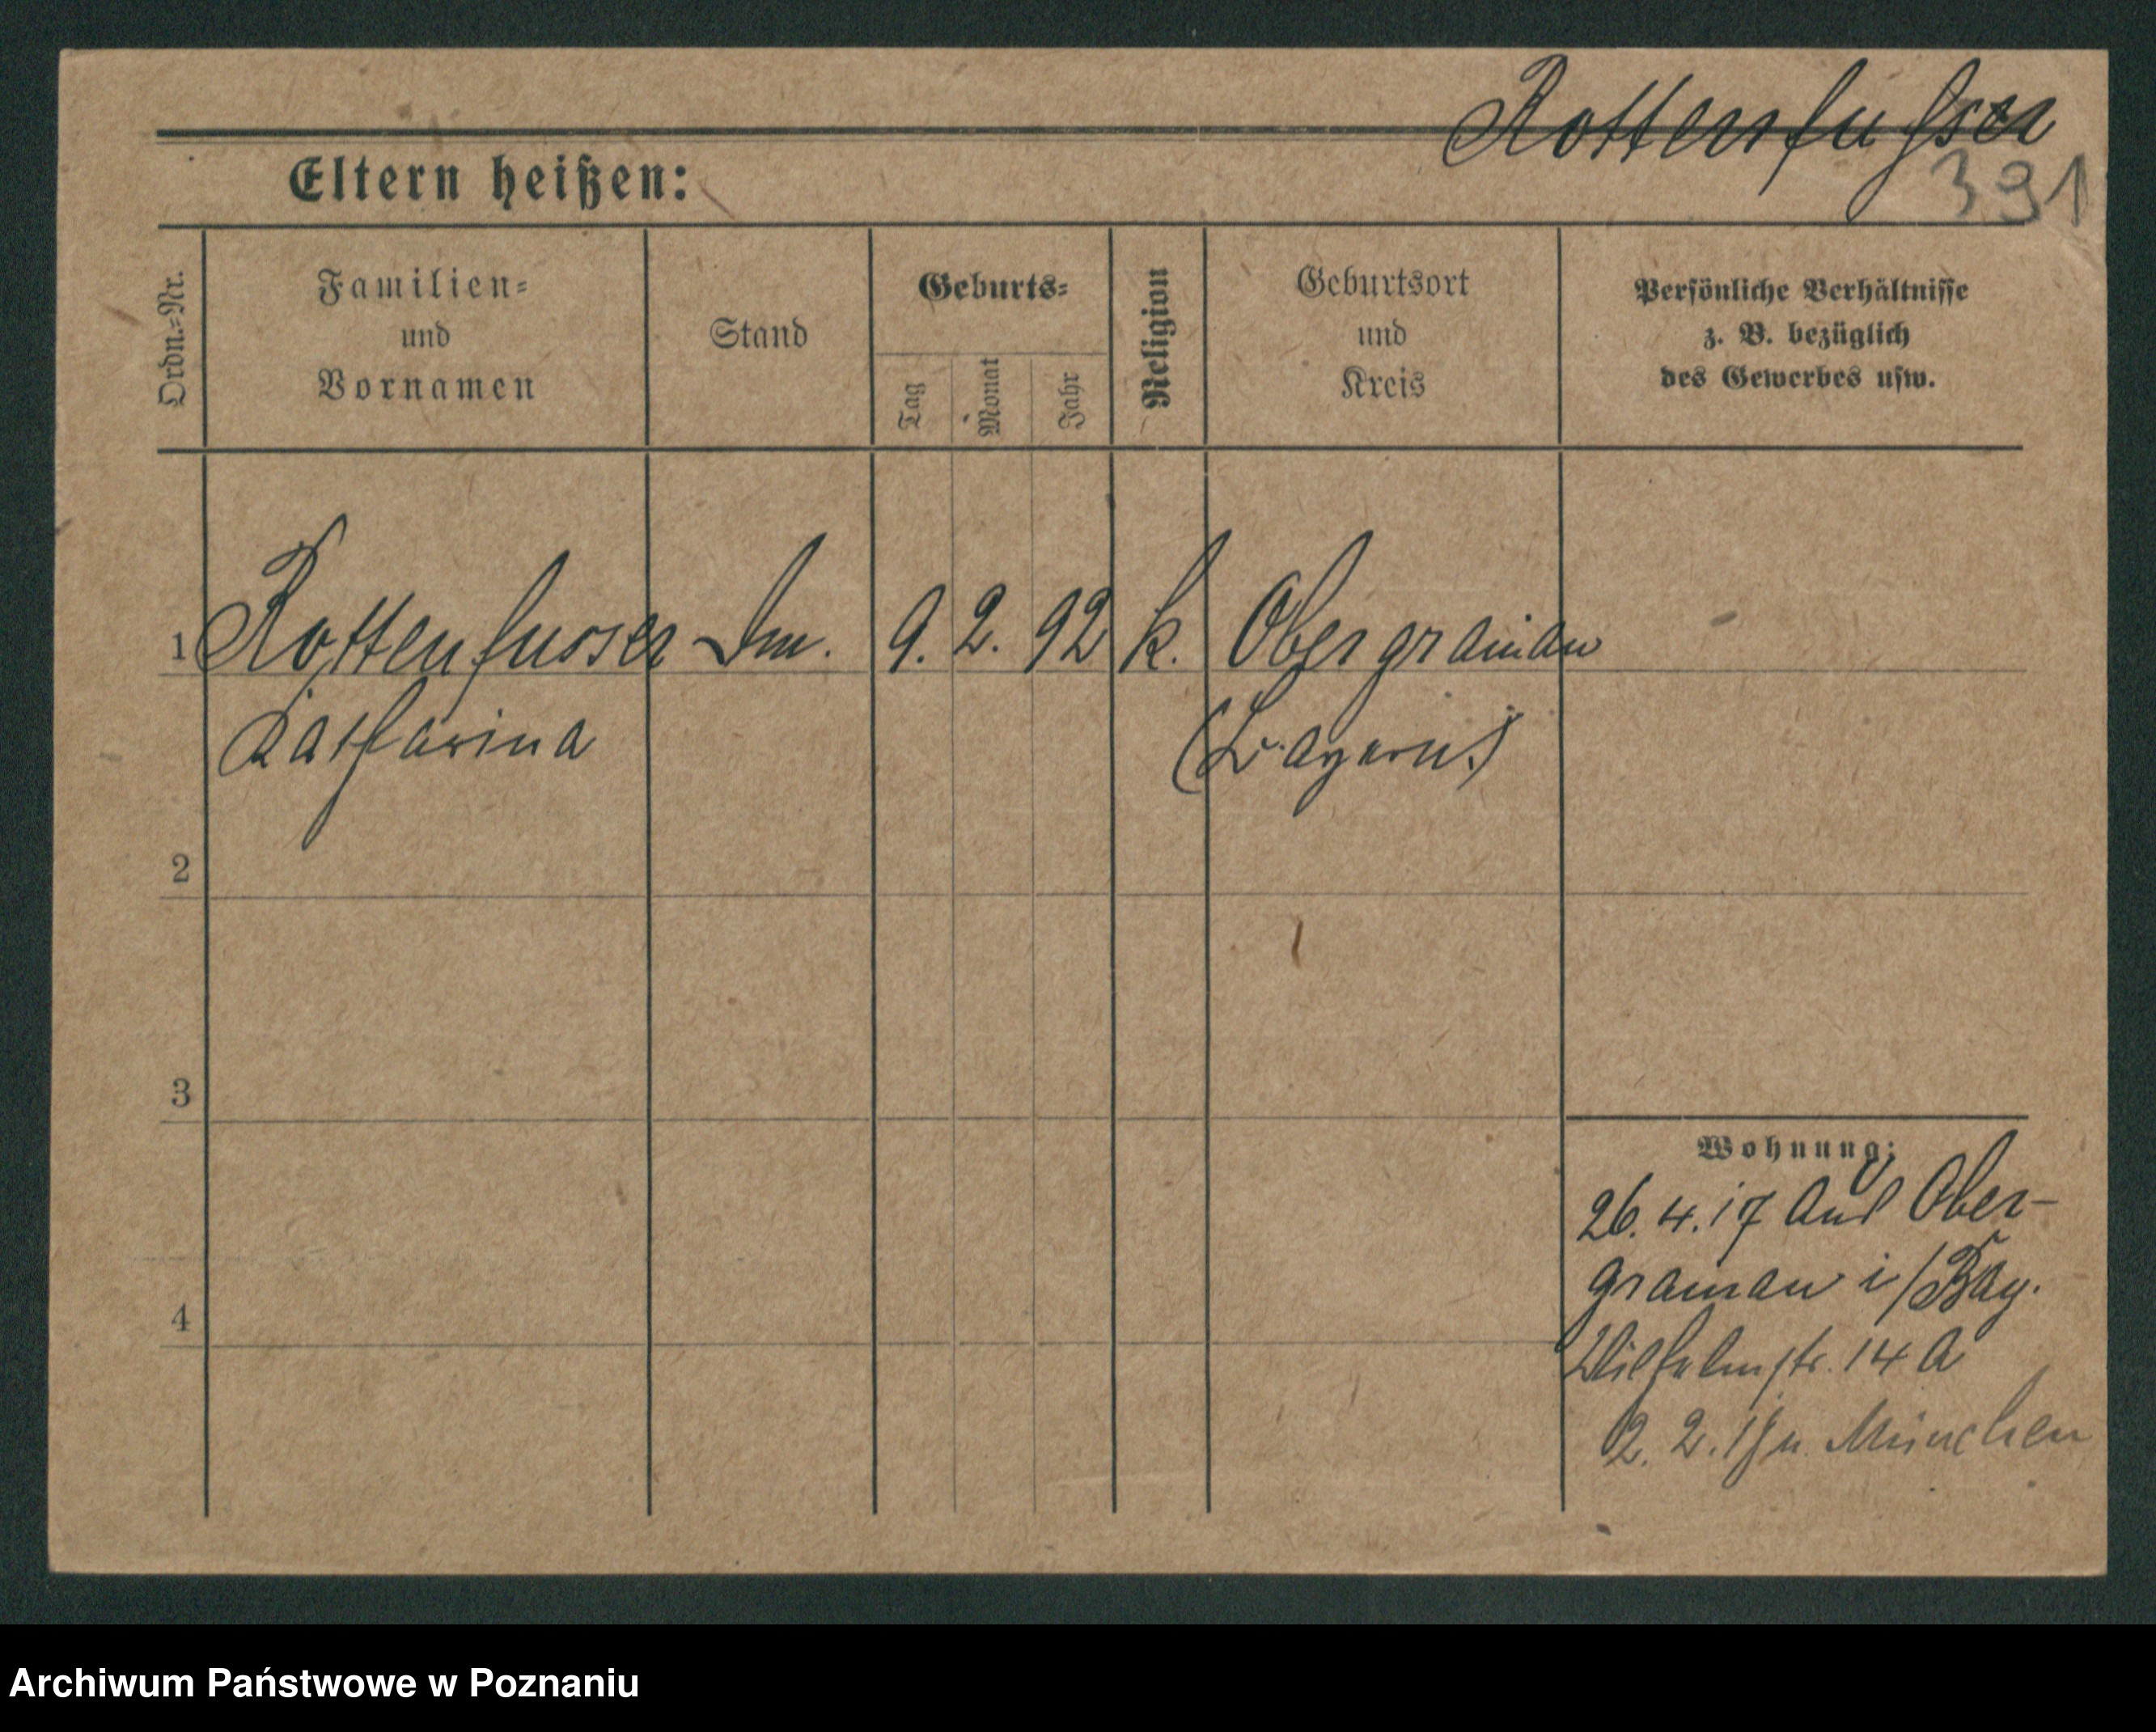 Rottenfusser
391
Eltern heißen:
Ordn.-Nr.
Familien-
und
Vornamen
Stand
Geburts-
Tag
Monat
Jahr
Religion
Geburtsort
und
Kreis
Persönliche Verhältnisse
z. B. bezüglich
des Gewerbes usw.
1 Rottenfusser 9. 2. 92 k. Obergrainau
Katharina (Bayern)
2
3
4
Wohnung:
26. 4. 17 aus Ober-
grainau i/Bay.
Wilhelmstr. 14 a
2. 2. 18 n. München
Archiwum Państwowe w Poznaniu